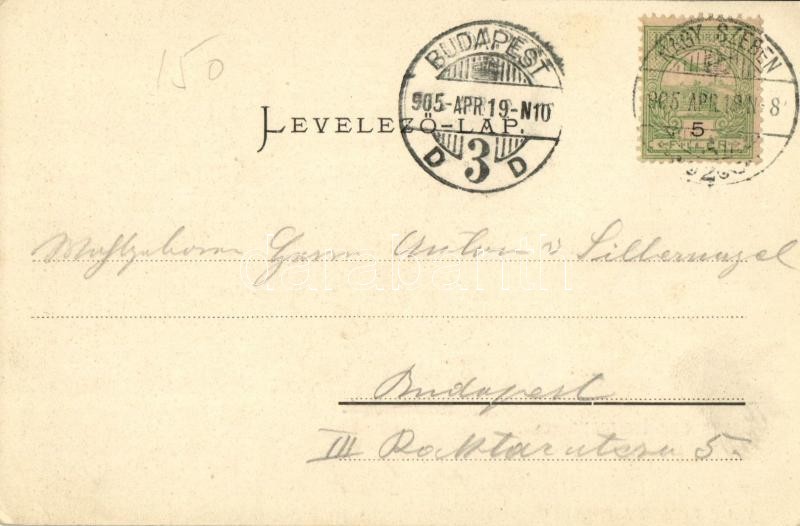 150
BUDAPEST
905-APR 19-N10
D 3 D
NAGY-SZEBEN
905-APR.19 N 8
5
FILLÉR
LEVELEZŐ-LAP.
Wohlgeboren Herrn Anton v Silbernagel
darabanth
Budapest
III Raktárutcza 5.